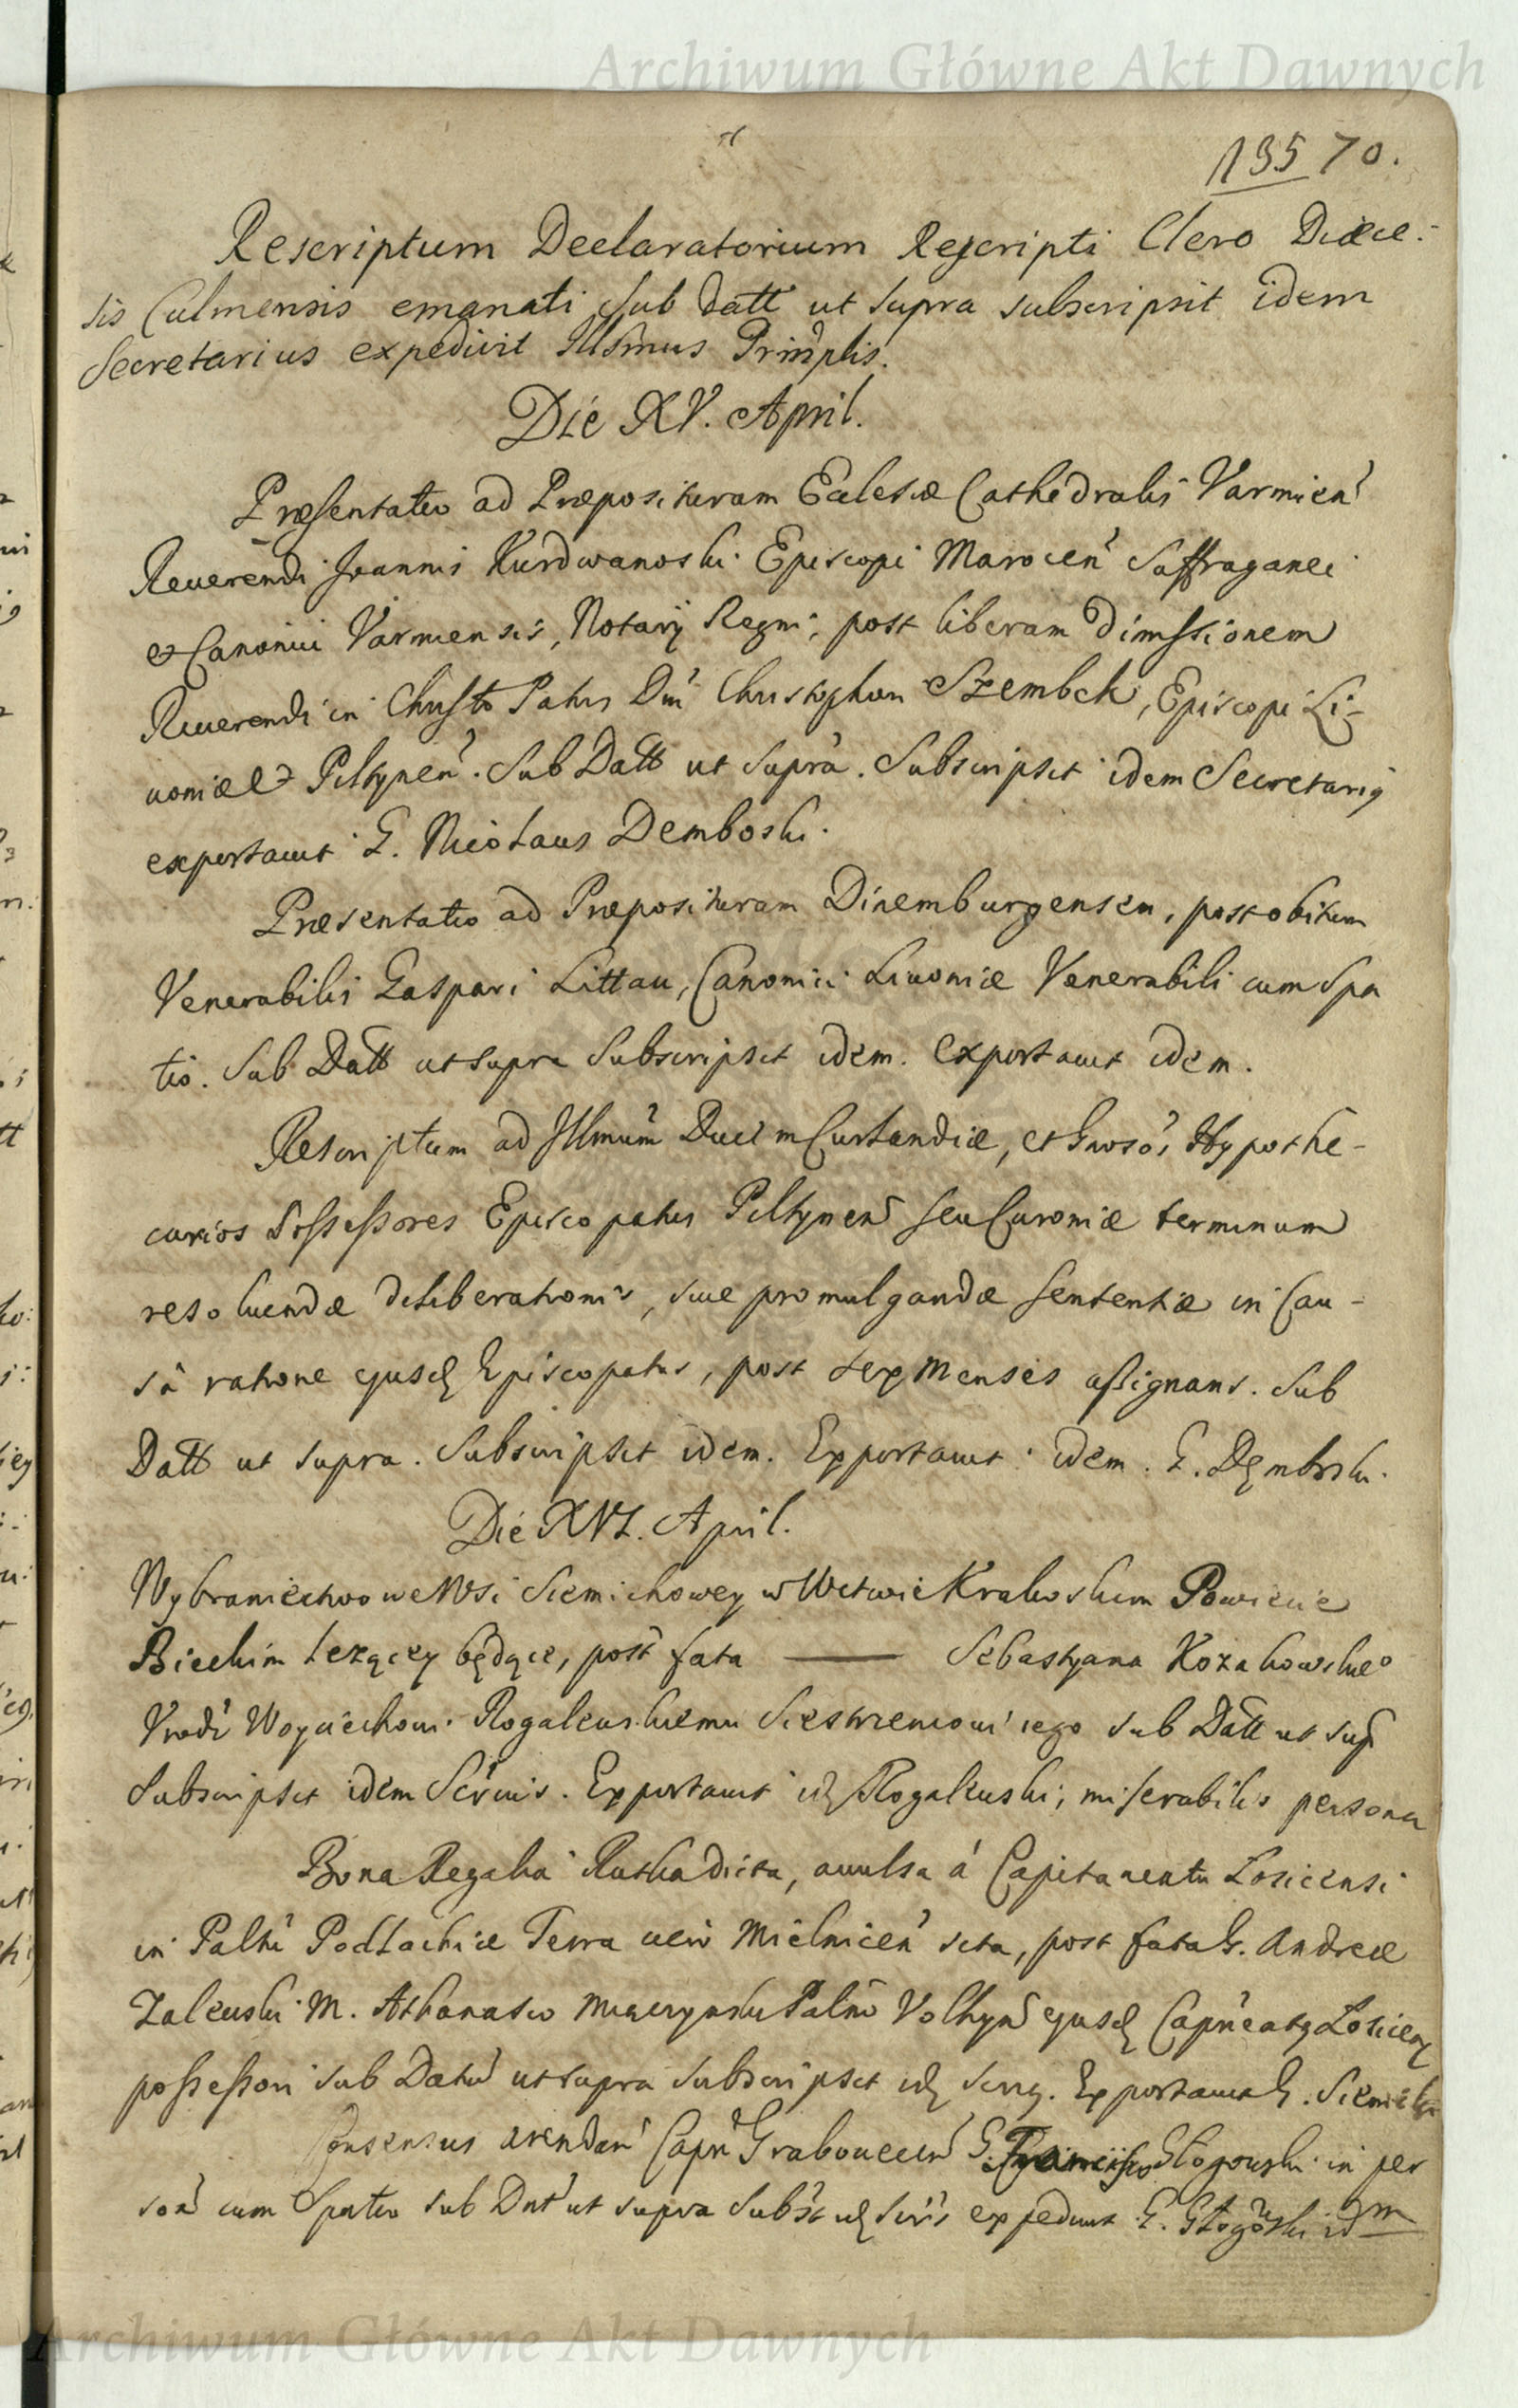 Archiwum Główne Akt Dawnych
195 70.
Rescriptum Declaratorium Rescripti Clero Diæce:
sis Culmensis emanati sub Datt ut supra subscripsit idem
Secretarius expedivit Illsmus Prin̄plis.
Die XV. April.
Præsentatio ad Præposituram Eccleśiæ Cathedralis Varmień
Reuerendi Joannis Kurdwanoski Episcopi Marocień Suffraganei
et Canonici Varmiensis, Notarÿ Regni, post liberam dimissionem
Reuerendi in Christo Patris Dni Christophori Szembek, Episcopi Li-
uoniæ et Piltyneń. Sub Datt ut supra. Subscripsit idem Secretariq
exportauit G. Nicolaus Demboski.
Præsentatio ad Præposituram Dinemburgensem, post obitum
Venerabilis Gaspari Littau, Canonici Livoniæ Venerabili cum Spa
tio. Sub Datt ut supra Subscripsit idem. exportauit idem.
Rescriptum ad Illmum Ducem Curlandiæ, et Gnrosos Hypothe-
carios Possessores Episcopatus Piltyneń seu Curoniæ terminum
resoluendæ deliberationis, siue promulgandæ sententiæ in Cau-
sa ratione ejusd Episcopatus, post sex Menses assignans. Sub
Datt ut supra. Subscripsit idem. Exportauit idem. G. Dęmbski.
Die XVI. April.
Wybraniectwo we Wsi Siemichowey w Wctwie Krakoskim Powiecie
Bieckim leżącey będące, post fata ——— Sebastyana Kozakowskieo
Vrodź Woyciechowi Rogaleuskiemu Siestrzencowi iego sub Datt ut sup
Subscripsit idem Secrius. Exportauit id Rogaleuski, miserabilis persona
Bona Regalia Rutka dicta, auulsa á Capitaneatu Losicensi
in Paltu Podlachiæ Terra vero Mielniceń sita, post fata G. Andreæ
Zaleuski M. Athanasio Miączynski Palno Volhyń ejusd Capneatq Losicen
possessori sub Datt ut supra subscripsit id Serrq. Exportauit G. Siemi
Consensus arendań Capn Graboueceń G. Francisco Głogouski in per
soā cum Spatio sub Dat ut supra Subst id Seris expediuit G. Głogoski idm
Archiwum Główne Akt Dawnych